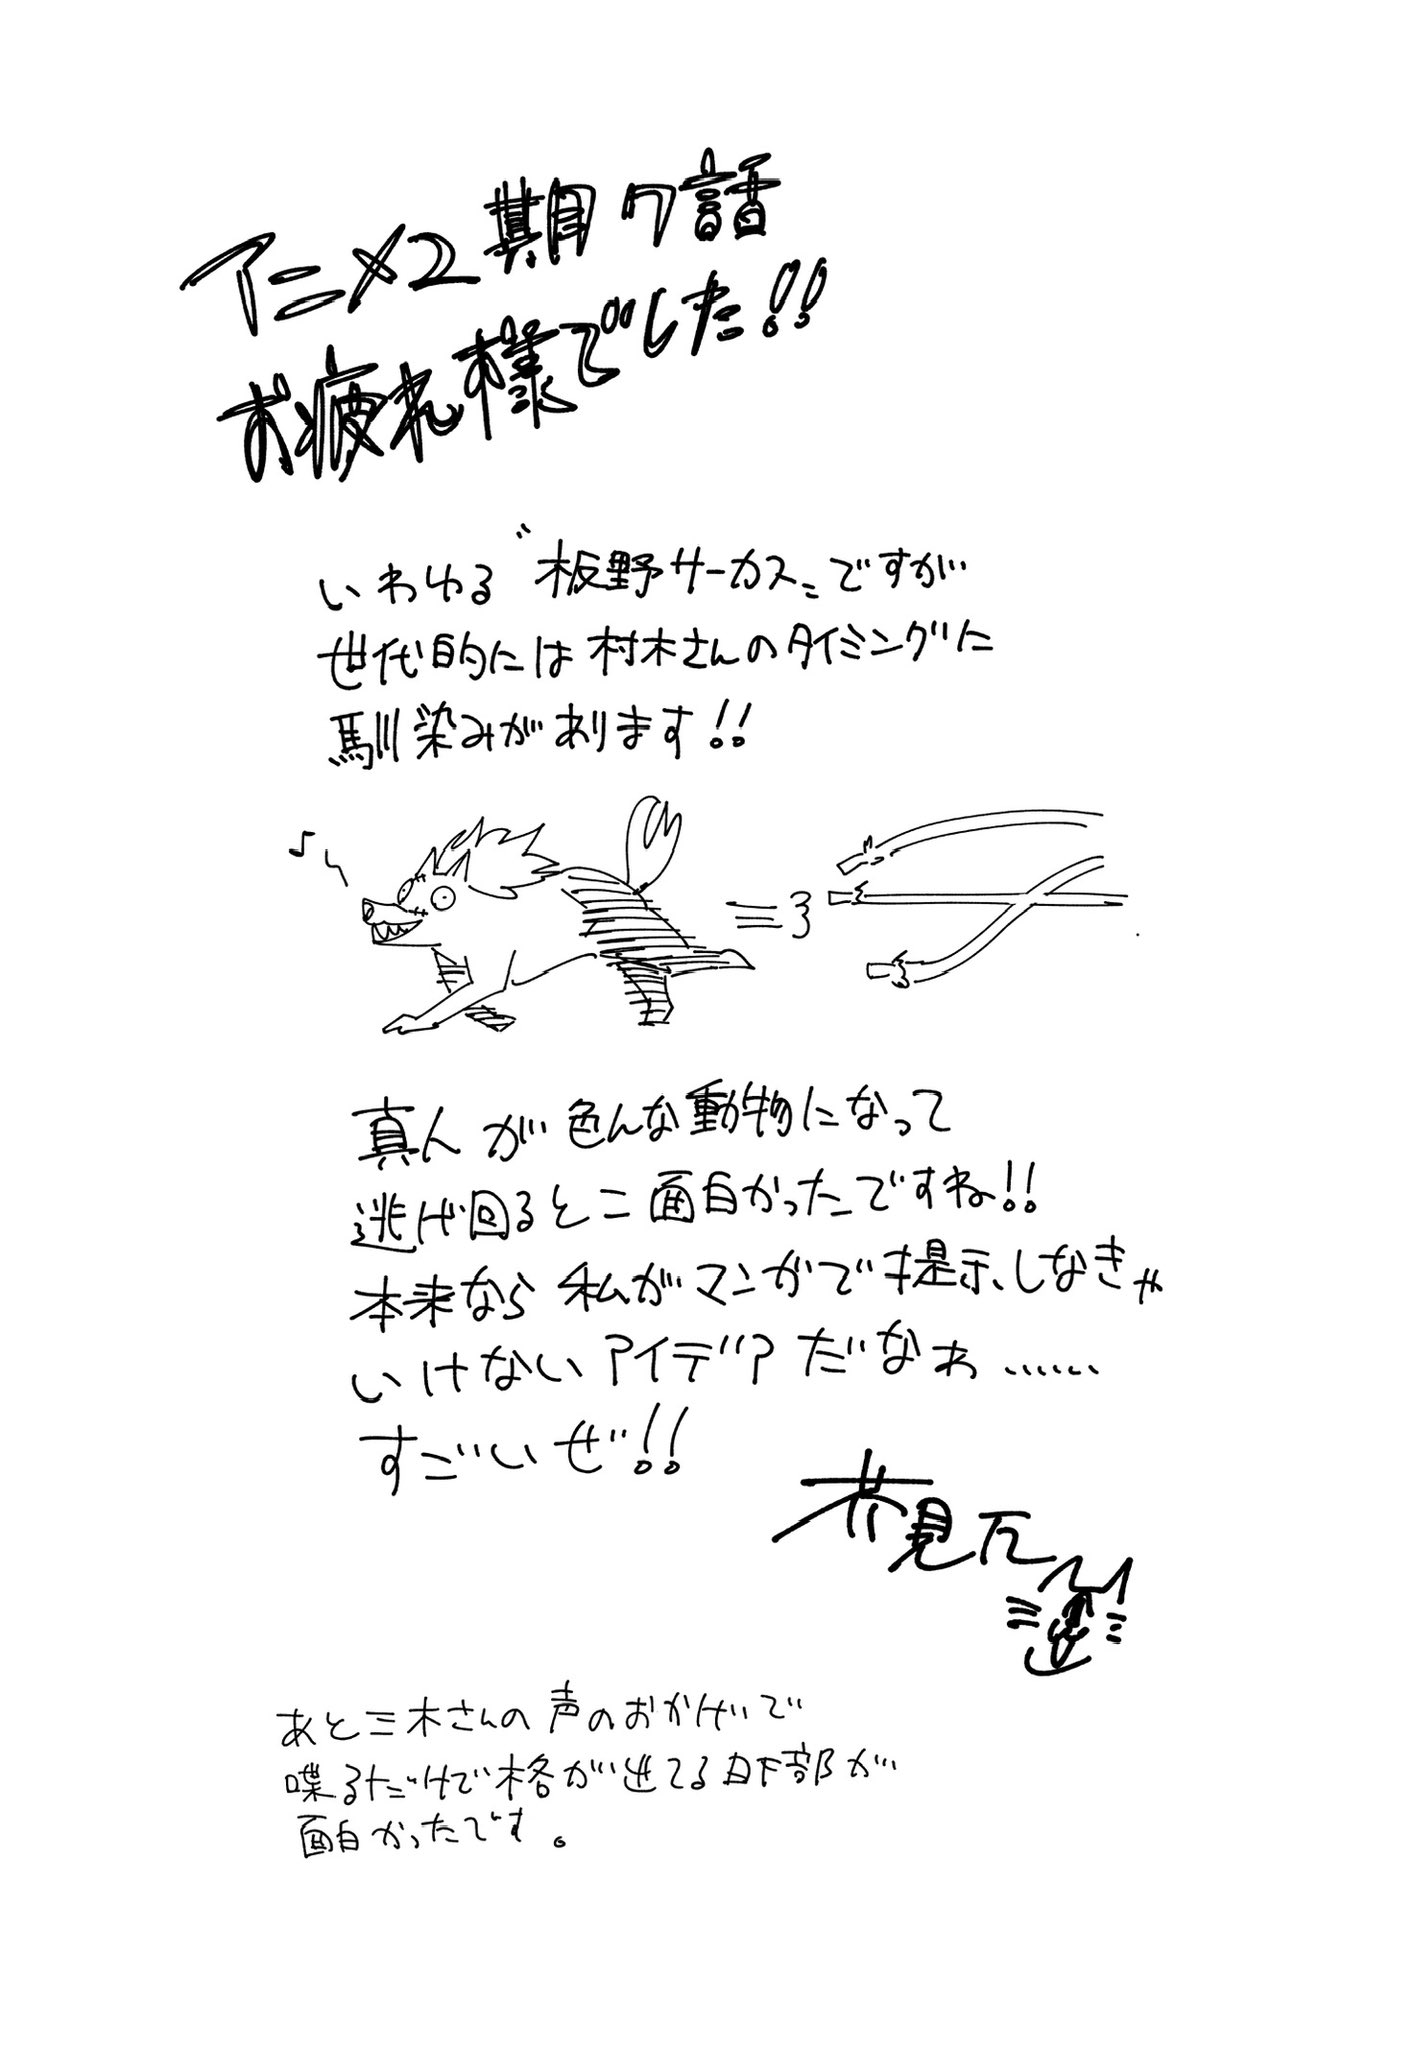 アニメ2期7話
お疲れ様でした!!
いわゆる〝板野サーカス〟ですが
世代的には村木さんのタイミングに
馴染みがあります!!
♪
真人が色んな動物になって
逃げ回るとこ面白かったですね!!
本来なら私がマンガで提示しなきゃ
いけないアイデアだなぁ……
すごいぜ!!
芥見下々
あと三木さんの声のおかげで
喋るだけで格が出てる日下部が
面白かったです。